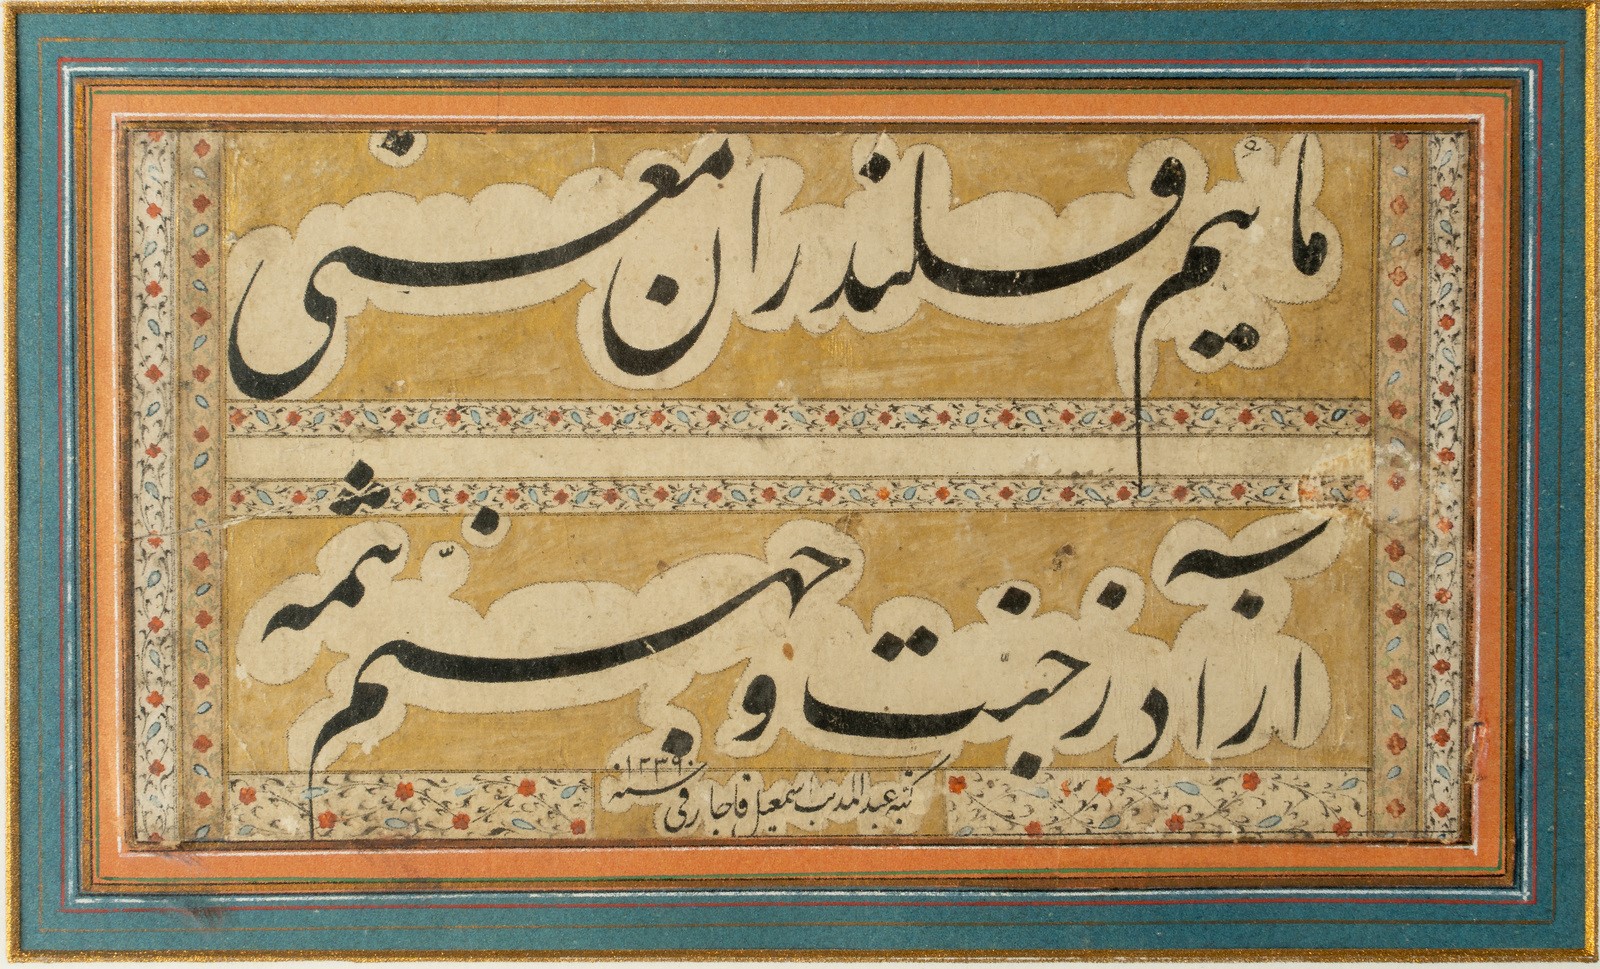 ماییم قلندران معنی
آزاد ز جنت و جهنم
کتبه عبد المذنب اسمعیل قاجار فی سنه ۱۲۳۹